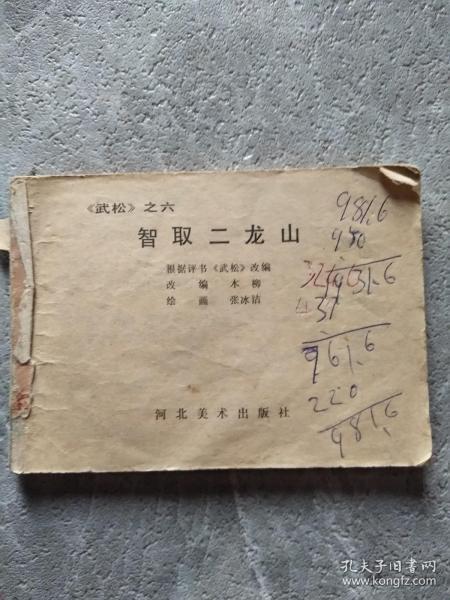 《武松》之六
智取二龙山
根据评书《武松》改编
改 编 木 柳
绘 画 张冰洁
河北美术出版社
981.6
980
961.6
220
981.6
孔夫子旧书网
www.kongfz.com